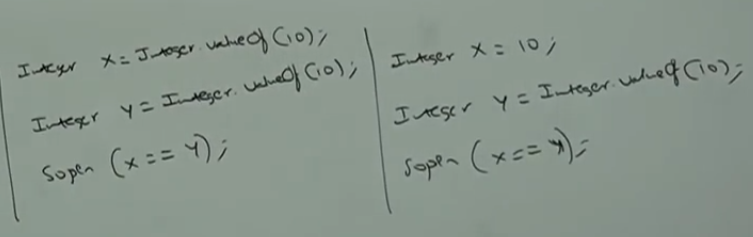 Integer x = Integer.valueOf(10);
Integer y = Integer.valueOf(10);
Sopln (x == y);
Integer x = 10;
Integer y = Integer.valueOf(10);
Sopln (x == y);